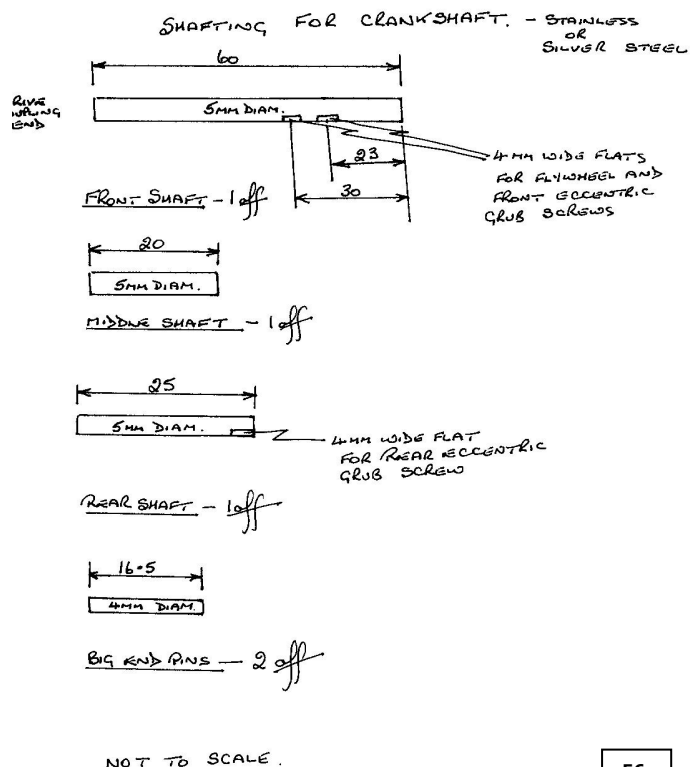 SHAFTING FOR CRANKSHAFT. - STAINLESS
OR
SILVER STEEL
60
5MM DIAM.
END
23
30
4 MM WIDE FLATS
FOR FLYWHEEL AND
FRONT ECCENTRIC
GRUB SCREWS
FRONT SHAFT - 1 off
20
5MM DIAM.
MIDDLE SHAFT - 1 off
25
5MM DIAM.
4MM WIDE FLAT
FOR REAR ECCENTRIC
GRUB SCREW
REAR SHAFT - 1 off
16.5
4MM DIAM.
BIG END PINS - 2 off
NOT TO SCALE.